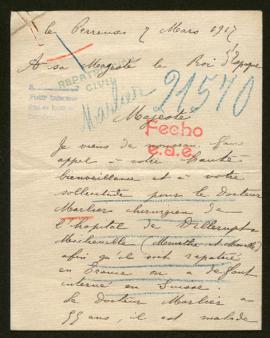 le Perreux 7 Mars 1917
A sa Majesté le Roi d'Espagne
REPATR
CIVIL
21570
Marlier
Majesté
Fecho
e.a.e.
Je viens de nouveau faire
appel à votre haute
bienveillance et à votre
sollicitude pour le docteur
Marlier chirurgien de
l'hopital de
(Meurthe et Moselle)
afin qu'il soit rapatrié
en France ou a defaut
interné en Suisse.
le docteur Marlier a
55 ans, il est malade